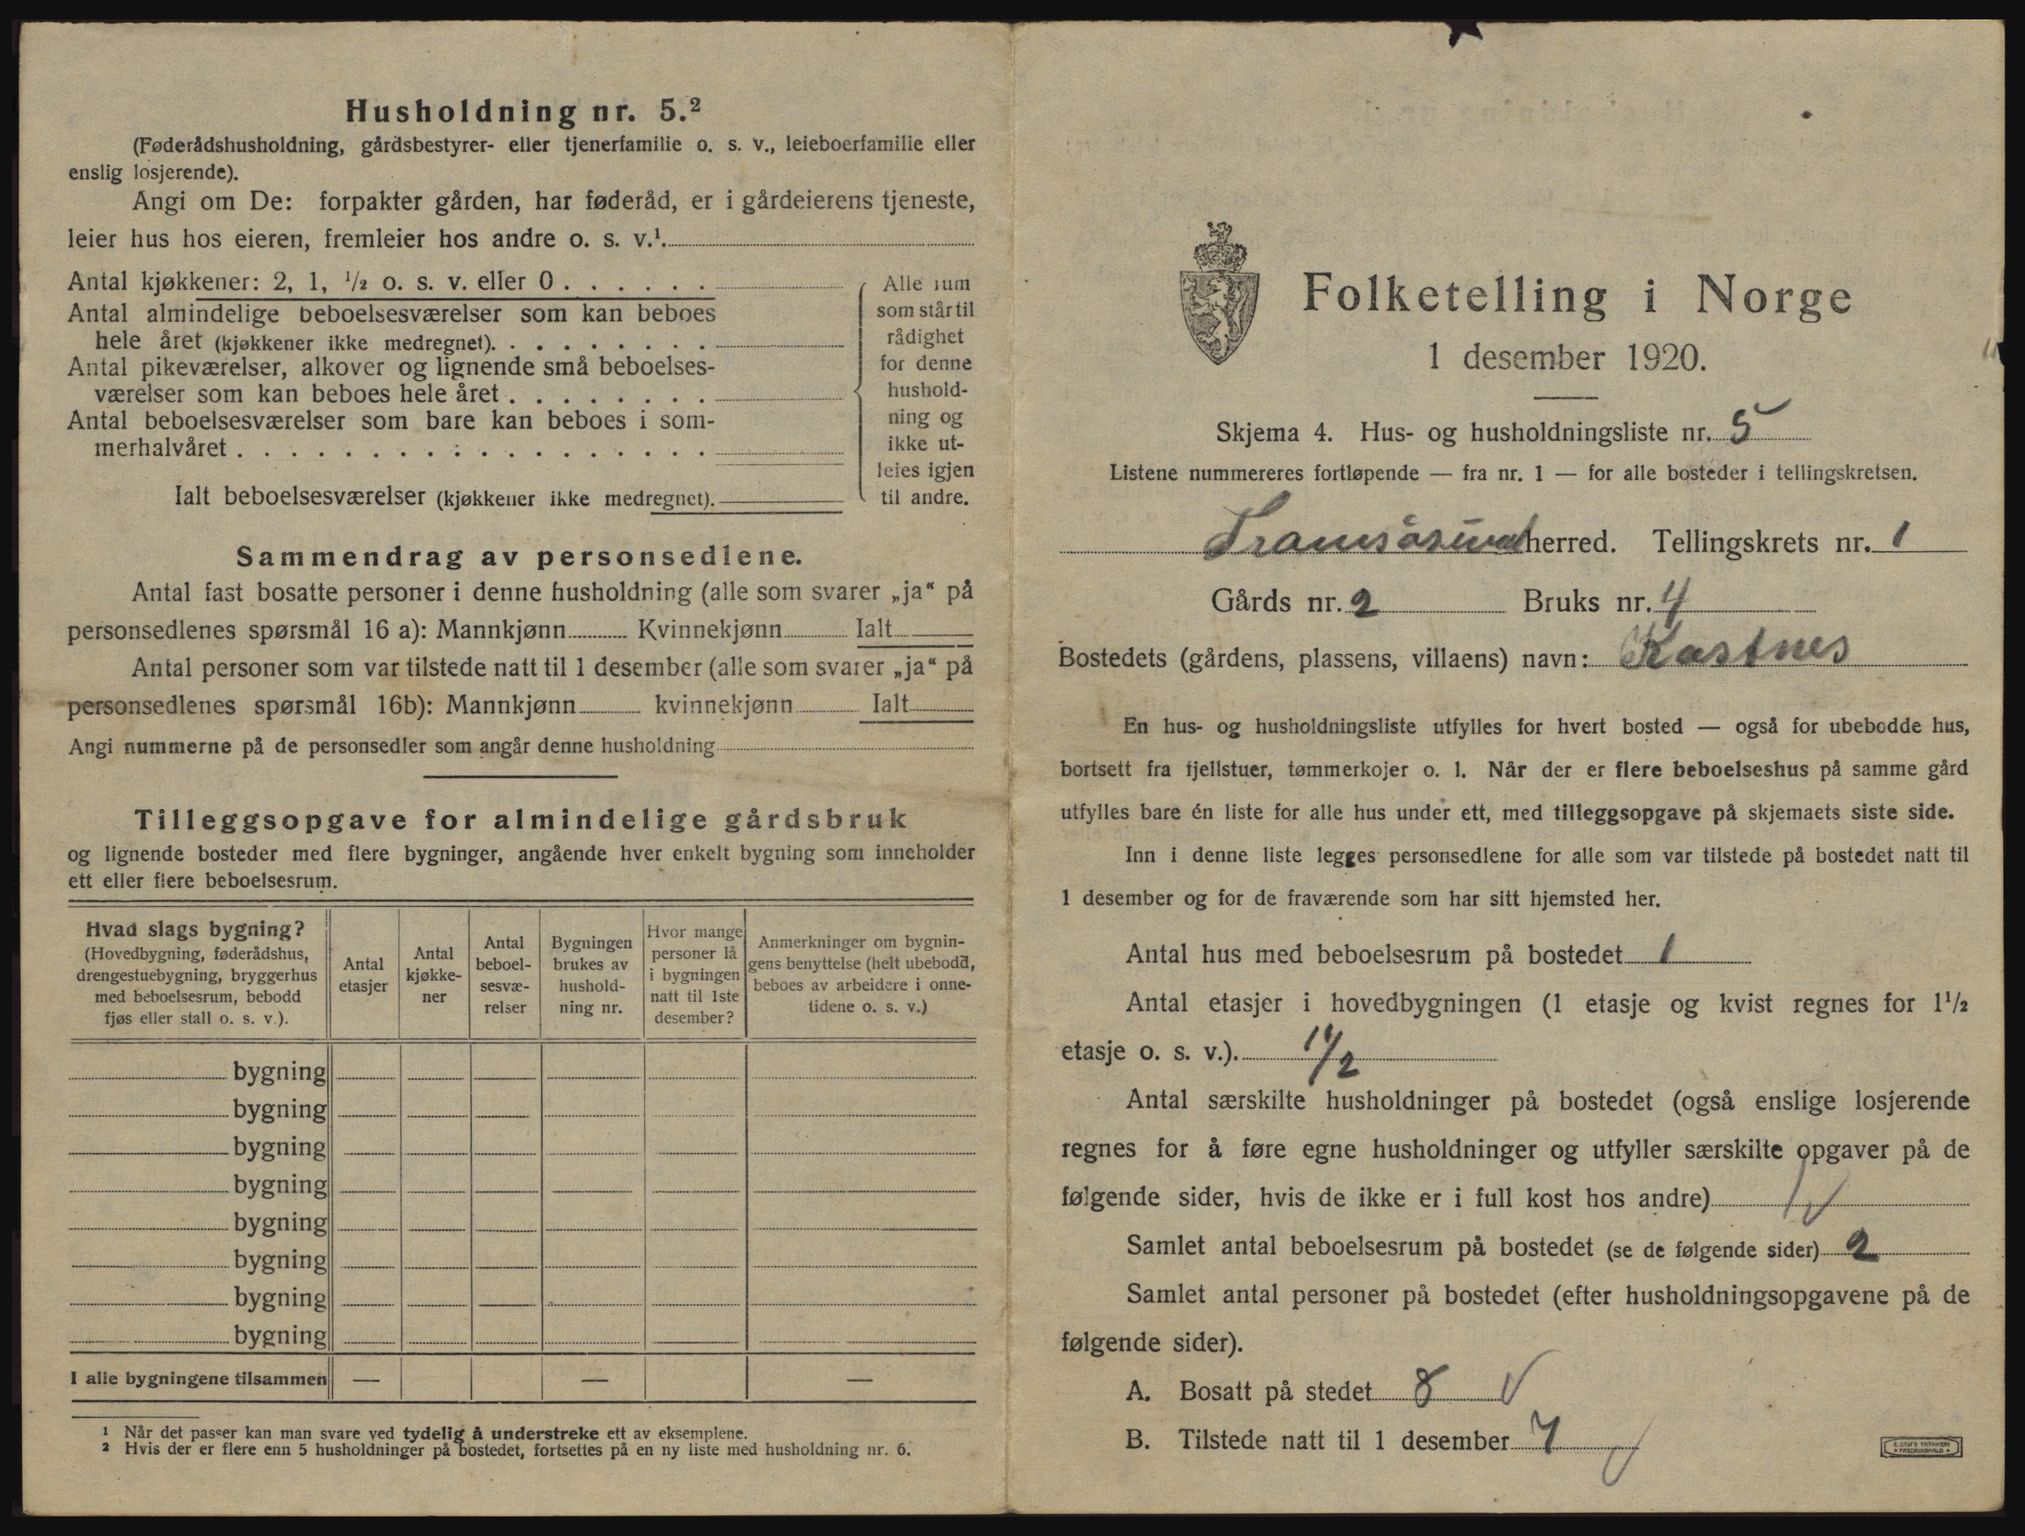 Husholdning nr. 5.²
(Føderådshusholdning, gårdsbestyrer- eller tjenerfamilie o. s. v., leieboerfamilie eller
enslig losjerende).
Angi om De: forpakter gården, har føderåd, er i gårdeierens tjeneste,
leier hus hos eieren, fremleier hos andre o. s. v.¹
Antal kjøkkener: 2, 1, ½ o. s. v. eller 0 . . . . . .
Antal almindelige beboelsesværelser som kan beboes
hele året (kjøkkener ikke medregnet). . . . . . . . .
Antal pikeværelser, alkover og lignende små beboelses-
værelser som kan beboes hele året . . . . . . . .
Antal beboelsesværelser som bare kan beboes i som-
merhalvåret . . . . . . . . . . . . . . . . . .
Ialt beboelsesværelser (kjøkkener ikke medregnet).
Alle rum
som står til
rådighet
for denne
hushold-
ning og
ikke ut-
leies igjen
til andre.
Sammendrag av personsedlene.
Antal fast bosatte personer i denne husholdning (alle som svarer „ja“ på
personsedlenes spørsmål 16 a): Mannkjønn Kvinnekjønn Ialt
Antal personer som var tilstede natt til 1 desember (alle som svarer „ja“ på
personsedlenes spørsmål 16b): Mannkjønn kvinnekjønn Ialt
Angi nummerne på de personsedler som angår denne husholdning
Tilleggsopgave for almindelige gårdsbruk
og lignende bosteder med flere bygninger, angående hver enkelt bygning som inneholder
ett eller flere beboelsesrum.
Hvad slags bygning?
(Hovedbygning, føderådshus,
drengestuebygning, bryggerhus
med beboelsesrum, bebodd
fjøs eller stall o. s. v.).
Antal
etasjer
Antal
kjøkke-
ner
Antal
beboel-
sesvæ-
relser
Bygningen
brukes av
hushold-
ning nr.
Hvor mange
personer lå
i bygningen
natt til 1ste
desember?
Anmerkninger om bygnin-
gens benyttelse (helt ubebodd,
beboes av arbeidere i onne-
tidene o. s. v.)
bygning
bygning
bygning
bygning
bygning
bygning
bygning
bygning
I alle bygningene tilsammen — — —
¹ Når det passer kan man svare ved tydelig å understreke ett av eksemplene.
² Hvis der er flere enn 5 husholdninger på bostedet, fortsettes på en ny liste med husholdning nr. 6.
Folketelling i Norge
1 desember 1920.
Skjema 4. Hus- og husholdningsliste nr. 5
Listene nummereres fortløpende — fra nr. 1 — for alle bosteder i tellingskretsen.
Tromsøsund herred. Tellingskrets nr. 1
Gårds nr. 2 Bruks nr. 4
Bostedets (gårdens, plassens, villaens) navn: Kastnes
En hus- og husholdningsliste utfylles for hvert bosted — også for ubebodde hus,
bortsett fra fjellstuer, tømmerkojer o. l. Når der er flere beboelseshus på samme gård
utfylles bare én liste for alle hus under ett, med tilleggsopgave på skjemaets siste side.
Inn i denne liste legges personsedlene for alle som var tilstede på bostedet natt til
1 desember og for de fraværende som har sitt hjemsted her.
Antal hus med beboelsesrum på bostedet 1
Antal etasjer i hovedbygningen (1 etasje og kvist regnes for 1½
etasje o. s. v.). 1½
Antal særskilte husholdninger på bostedet (også enslige losjerende
regnes for å føre egne husholdninger og utfyller særskilte opgaver på de
følgende sider, hvis de ikke er i full kost hos andre) 1 √
Samlet antal beboelsesrum på bostedet (se de følgende sider) 2
Samlet antal personer på bostedet (efter husholdningsopgavene på de
følgende sider).
A. Bosatt på stedet 8 √
B. Tilstede natt til 1 desember 7 √